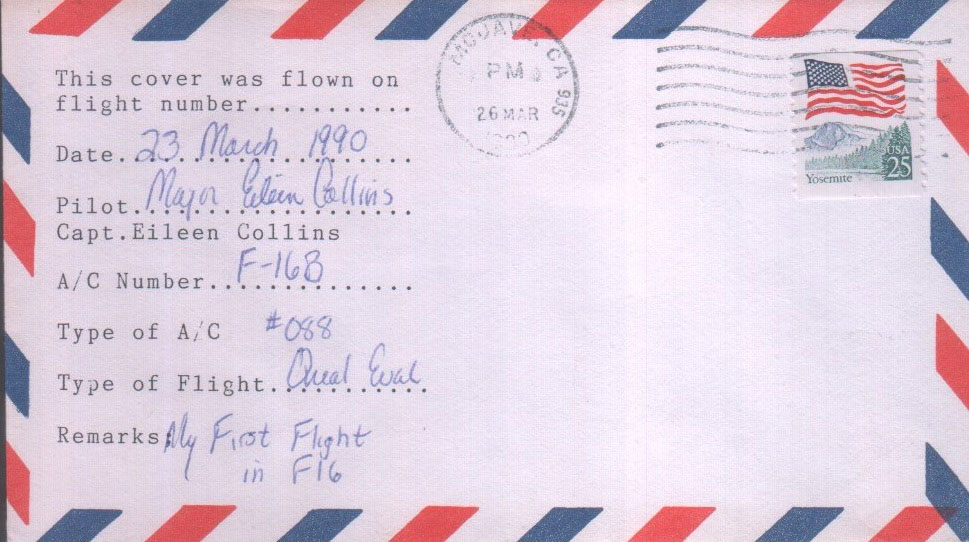 This cover was flown on
flight number............
Date. 23 March 1990
Pilot. Major Eileen Collins
Capt.Eileen Collins
A/C Number. F-16B
Type of A/C #088
Type of Flight. Qual Eval
Remarks: My First Flight
in F16
MOJAVE, CA 935
PM
26 MAR
USA
25
Yosemite